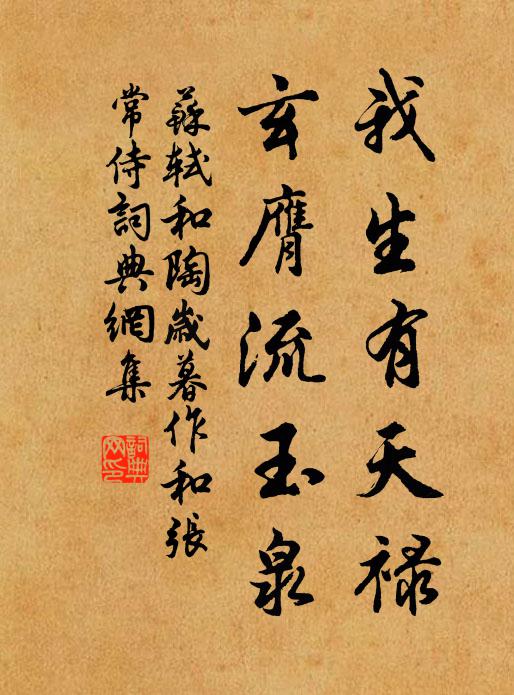 我生有天禄
玄膺流玉泉
蘇軾和陶歲暮作和張
常侍詞典網集
詞典网印